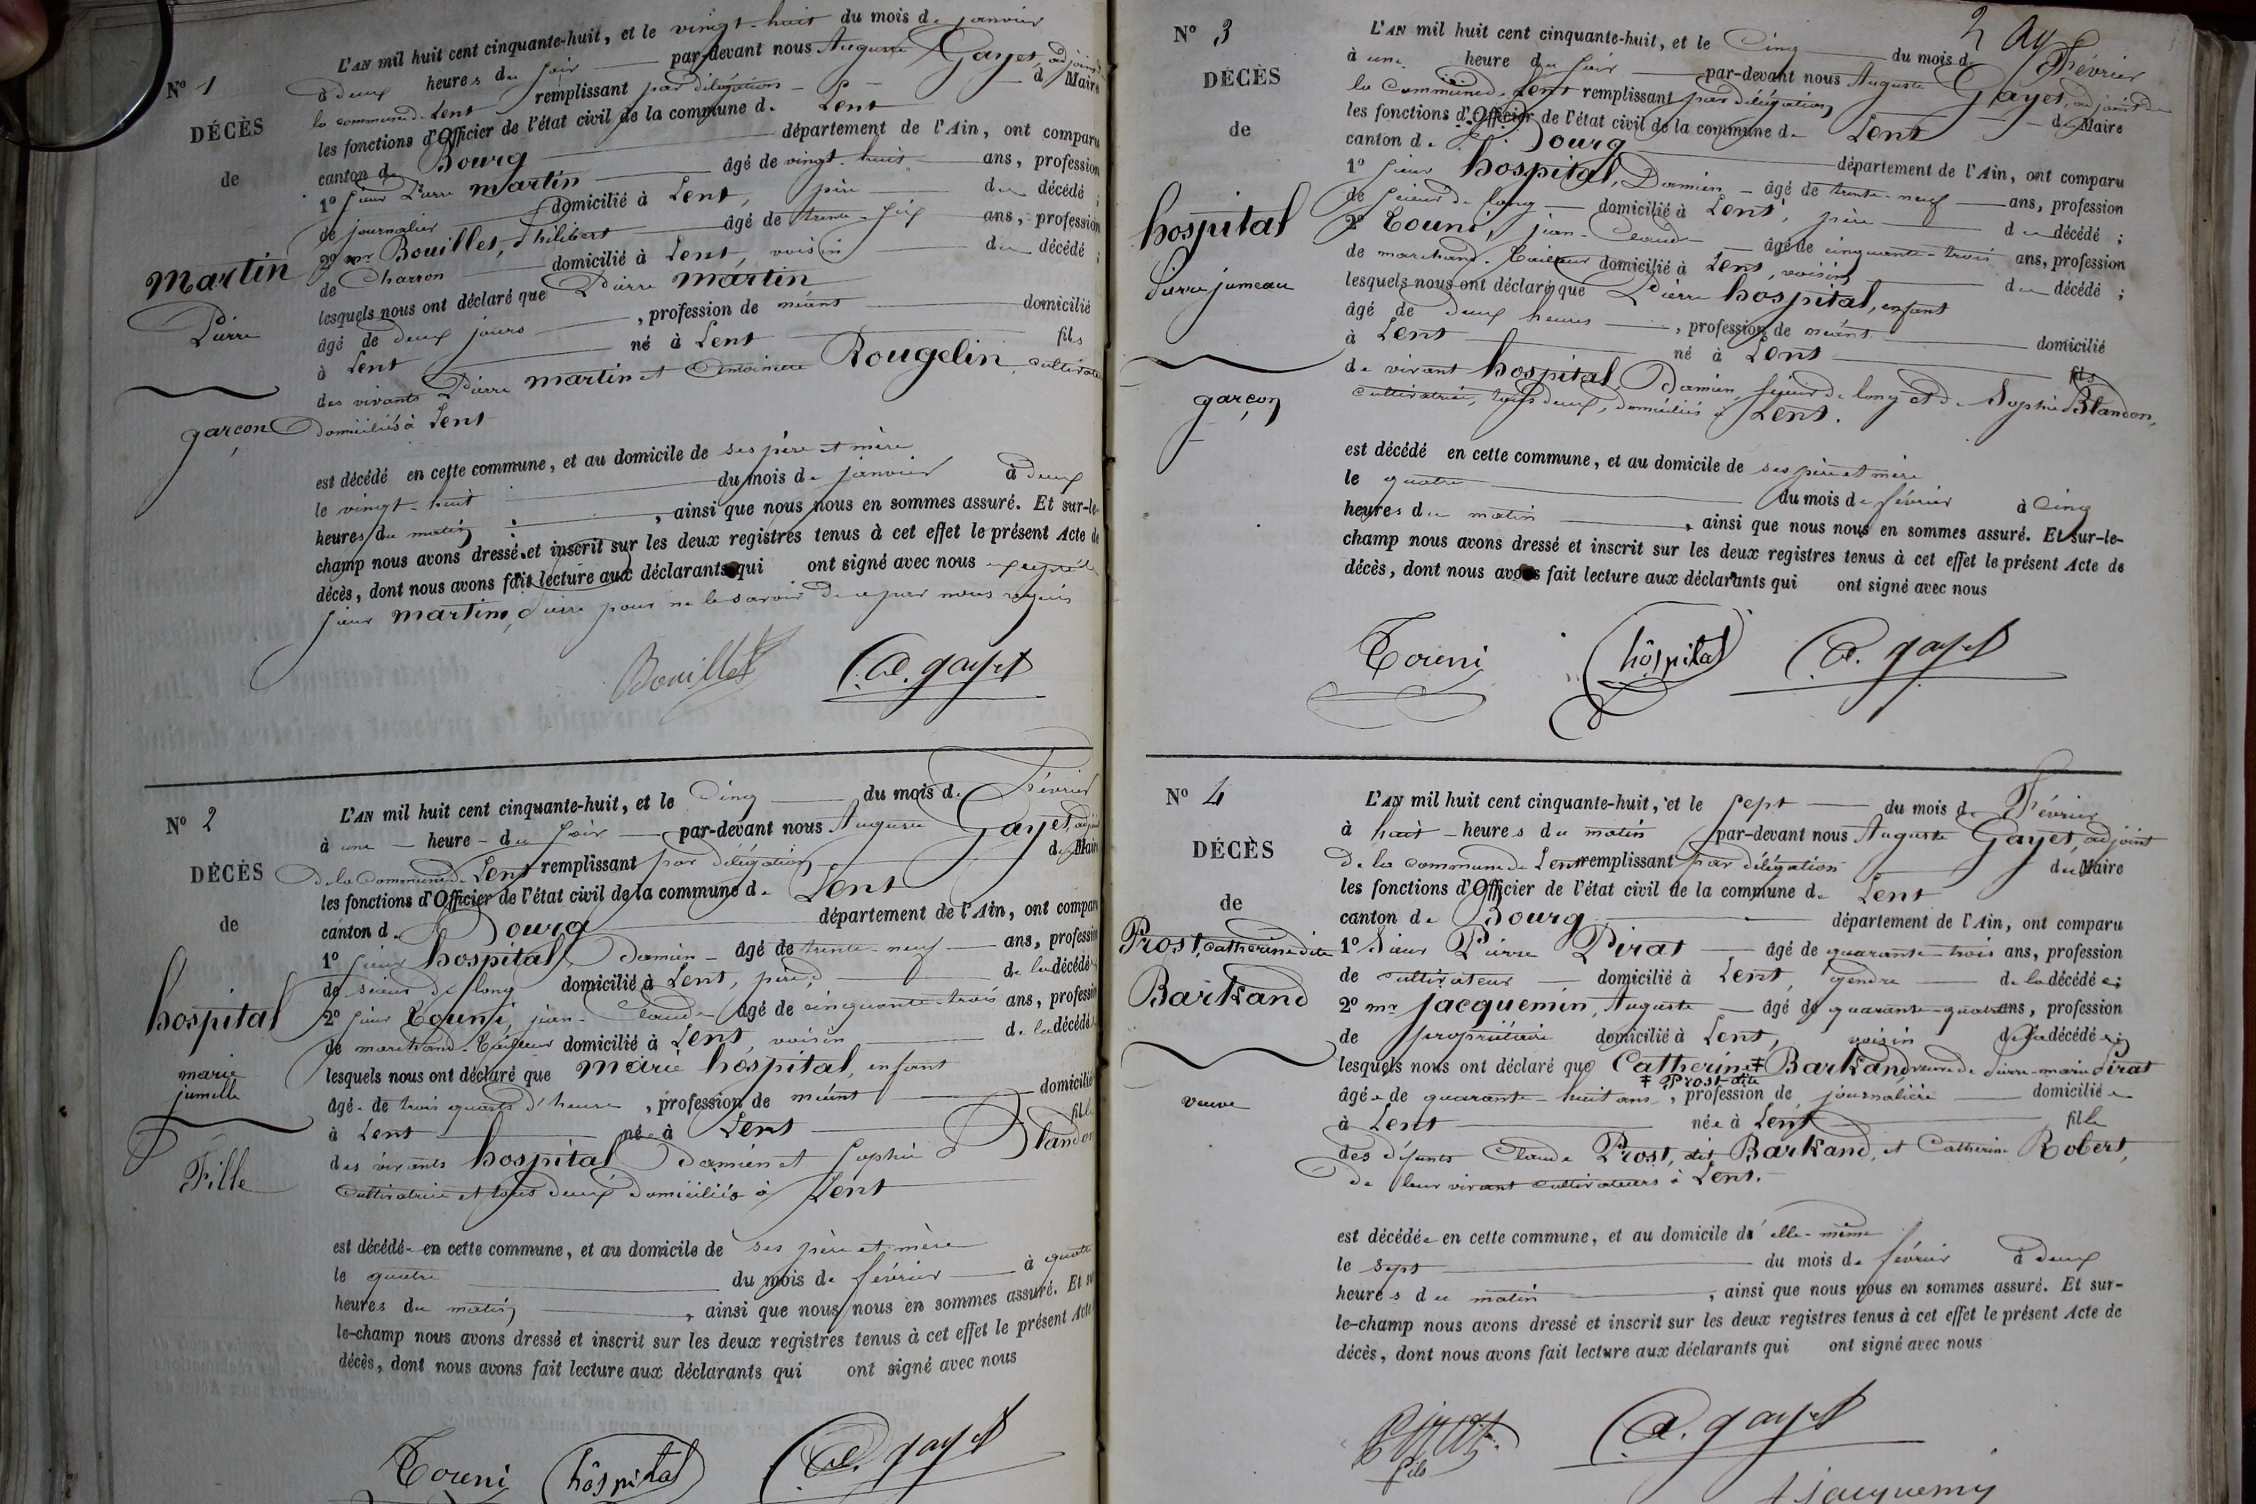 N° 1
DÉCÈS
de
Martin
Pierre
garçon
L'AN mil huit cent cinquante-huit, et le vingt-huit du mois de janvier
à deux heures du soir par-devant nous Auguste Gayet, adjoint
la commune de Lent remplissant par délégation d Maire
les fonctions d'Officier de l'état civil de la commune de Lent
canton de Bourg département de l'Ain, ont comparu
1° sieur Pierre Martin âgé de vingt-huit ans, profession
de journalier domicilié à Lent, père du décédé ;
2° mr Bouillet, Philibert âgé de trente-six ans, profession
de Charron domicilié à Lent, voisin du décédé ;
lesquels nous ont déclaré que Pierre Martin
âgé de deux jours, profession de néant domicilié
à Lent né à Lent fils
des vivants Pierre Martin et Antoinette Rougelin, cultivateurs
domiciliés à Lent
est décédé en cette commune, et au domicile de ses père et mère
le vingt-huit du mois de janvier à deux
heures du matin, ainsi que nous nous en sommes assuré. Et sur-le-
champ nous avons dressé et inscrit sur les deux registres tenus à cet effet le présent Acte de
décès, dont nous avons fait lecture aux déclarants qui ont signé avec nous excepté le
sieur Martin, Pierre pour ne le savoir de ce par nous requis
Bouillet A. gayet
N° 2
DÉCÈS
de
hospital
marie
jumelle
Fille
L'AN mil huit cent cinquante-huit, et le Cinq du mois de Février
à une heure du soir par-devant nous Auguste Gayet, adjoint
de la commune de Lent remplissant par délégation du Maire
les fonctions d'Officier de l'état civil de la commune de Lent
canton de Bourg département de l'Ain, ont comparu
1° sieur hospital Damien âgé de trente-neuf ans, profession
de scieur de long domicilié à Lent, père, de la décédée
2° sieur Touni, jean-Claude âgé de cinquante-trois ans, profession
de marchand-Tailleur domicilié à Lent, voisin de la décédée
lesquels nous ont déclaré que marie hospital, enfant
âgée de trois quarts d'heure, profession de néant domicilié
à Lent née à Lent fille
des vivants hospital Damien et Sophie Blandon
cultivatrice et tous deux domiciliés à Lent
est décédée en cette commune, et au domicile de ses père et mère
le quatre du mois de février à quatre
heures du matin, ainsi que nous nous en sommes assuré. Et sur-
le-champ nous avons dressé et inscrit sur les deux registres tenus à cet effet le présent Acte
décès, dont nous avons fait lecture aux déclarants qui ont signé avec nous
Touni hôspital A. gayet
2 ay
N° 3
DÉCÈS
de
hospital
Pierre jumeau
garçon
L'AN mil huit cent cinquante-huit, et le Cinq du mois de Février
à une heure du soir par-devant nous Auguste Gayet, adjoint de
la commune de Lent remplissant par délégation du Maire
les fonctions d'Officier de l'état civil de la commune de Lent
canton de Bourg département de l'Ain, ont comparu
1° sieur hospital, Damien âgé de trente-neuf ans, profession
de scieur de long domicilié à Lent, père du décédé ;
2° Touni, jean-Claude âgé de cinquante-trois ans, profession
de marchand-Tailleur domicilié à Lent, voisin du décédé ;
lesquels nous ont déclaré que Pierre hospital, enfant
âgé de deux heures, profession de néant domicilié
à Lent né à Lent fils
de vivant hospital Damien, scieur de long et de Sophie Blandon,
cultivatrice, tous deux, domiciliés à Lent.
est décédé en cette commune, et au domicile de ses père et mère
le quatre du mois de février à Cinq
heures du matin, ainsi que nous nous en sommes assuré. Et sur-le-
champ nous avons dressé et inscrit sur les deux registres tenus à cet effet le présent Acte de
décès, dont nous avons fait lecture aux déclarants qui ont signé avec nous
Touni hôspital A. gayet
N° 4
DÉCÈS
de
Prost, catherine dite
Barkand
veuve
L'AN mil huit cent cinquante-huit, et le sept du mois de Février
à huit heures du matin par-devant nous Auguste Gayet, adjoint
de la commune de Lent remplissant par délégation du Maire
les fonctions d'Officier de l'état civil de la commune de Lent
canton de Bourg département de l'Ain, ont comparu
1° Sieur Pierre Pirat âgé de quarante-trois ans, profession
de cultivateur domicilié à Lent, gendre de la décédée ;
2° mr Jacquemin, Auguste âgé de quarante-quatre ans, profession
de propriétaire domicilié à Lent, voisin de la décédée ;
lesquels nous ont déclaré que Catherine ǂ Barkand veuve de Pierre-marie Pirat
ǂ Prost-dite
âgée de quarante-huit ans, profession de journalière domiciliée
à Lent née à Lent fille
des défunts Claude Prost, dit Barkand, et Catherine Robert,
de leur vivant cultivateurs à Lent.
est décédée en cette commune, et au domicile d'elle-même
le sept du mois de février à deux
heures du matin, ainsi que nous nous en sommes assuré. Et sur-
le-champ nous avons dressé et inscrit sur les deux registres tenus à cet effet le présent Acte de
décès, dont nous avons fait lecture aux déclarants qui ont signé avec nous
Pirat A. gayet
fils
Jacquemin